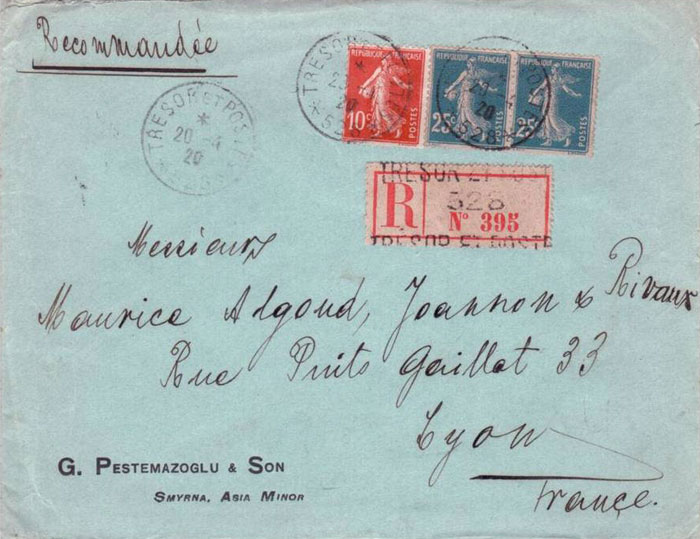 Recommandée
TRESOR ET POSTES
* 20
20
528
REPUBLIQUE FRANÇAISE
10c POSTES
REPUBLIQUE FRANÇAISE
25c POSTES
REPUBLIQUE FRANÇAISE
25c POSTES
TRESOR ET POSTES
20
528
TRESOR ET
528
R Nº 395
TRESOR ET POSTE
Messieurs
Maurice Algoud, Joannon & Rivaux
Rue Puits Gaillot 33
Lyon
France.
G. PESTEMAZOGLU & SON
SMYRNA, ASIA MINOR